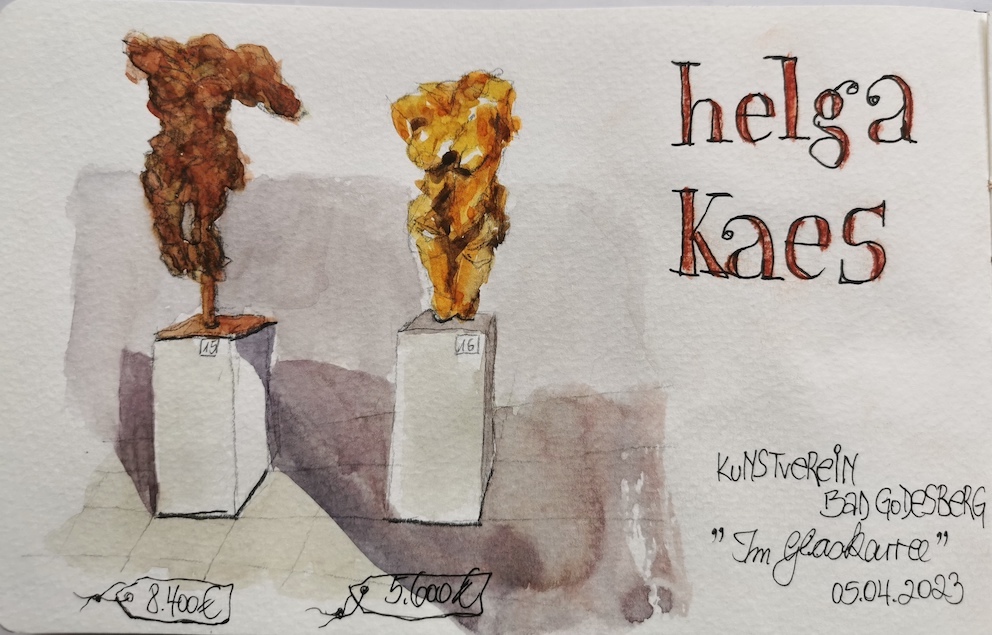 helga
Kaes
15
16
KUNSTVEREIN
BAD GODESBERG
"Im Glaskarree"
05.04.2023
8.400€
5.600€